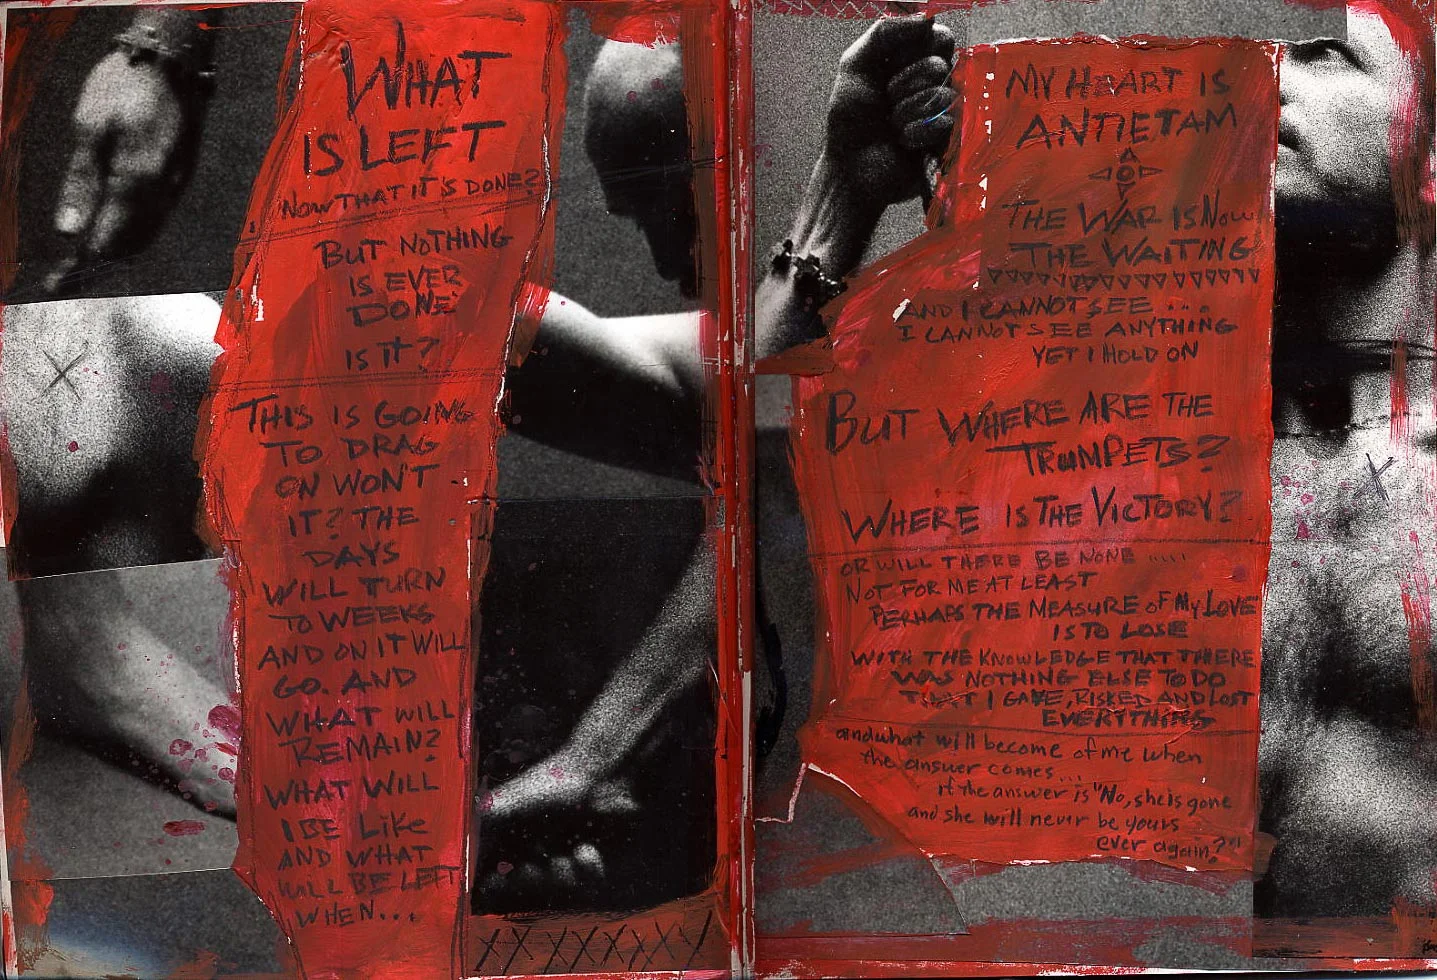 WHAT
IS LEFT
NOW THAT IT'S DONE?
BUT NOTHING
IS EVER
DONE
IS IT?
THIS IS GOING
TO DRAG
ON WON'T
IT? THE
DAYS
WILL TURN
TO WEEKS
AND ON IT WILL
GO. AND
WHAT WILL
REMAIN?
WHAT WILL
I BE LIKE
AND WHAT
WILL BE LEFT
WHEN...
MY HEART IS
ANTIETAM
THE WAR IS NOW
THE WAITING
AND I CANNOT SEE ...
I CANNOT SEE ANYTHING
YET I HOLD ON
BUT WHERE ARE THE
TRUMPETS?
WHERE IS THE VICTORY?
OR WILL THERE BE NONE .....
NOT FOR ME AT LEAST
PERHAPS THE MEASURE OF MY LOVE
IS TO LOSE
WITH THE KNOWLEDGE THAT THERE
WAS NOTHING ELSE TO DO
THAT I GAVE, RISKED AND LOST
EVERYTHING
and what will become of me when
the answer comes...
if the answer is "No, she is gone
and she will never be yours
ever again?"